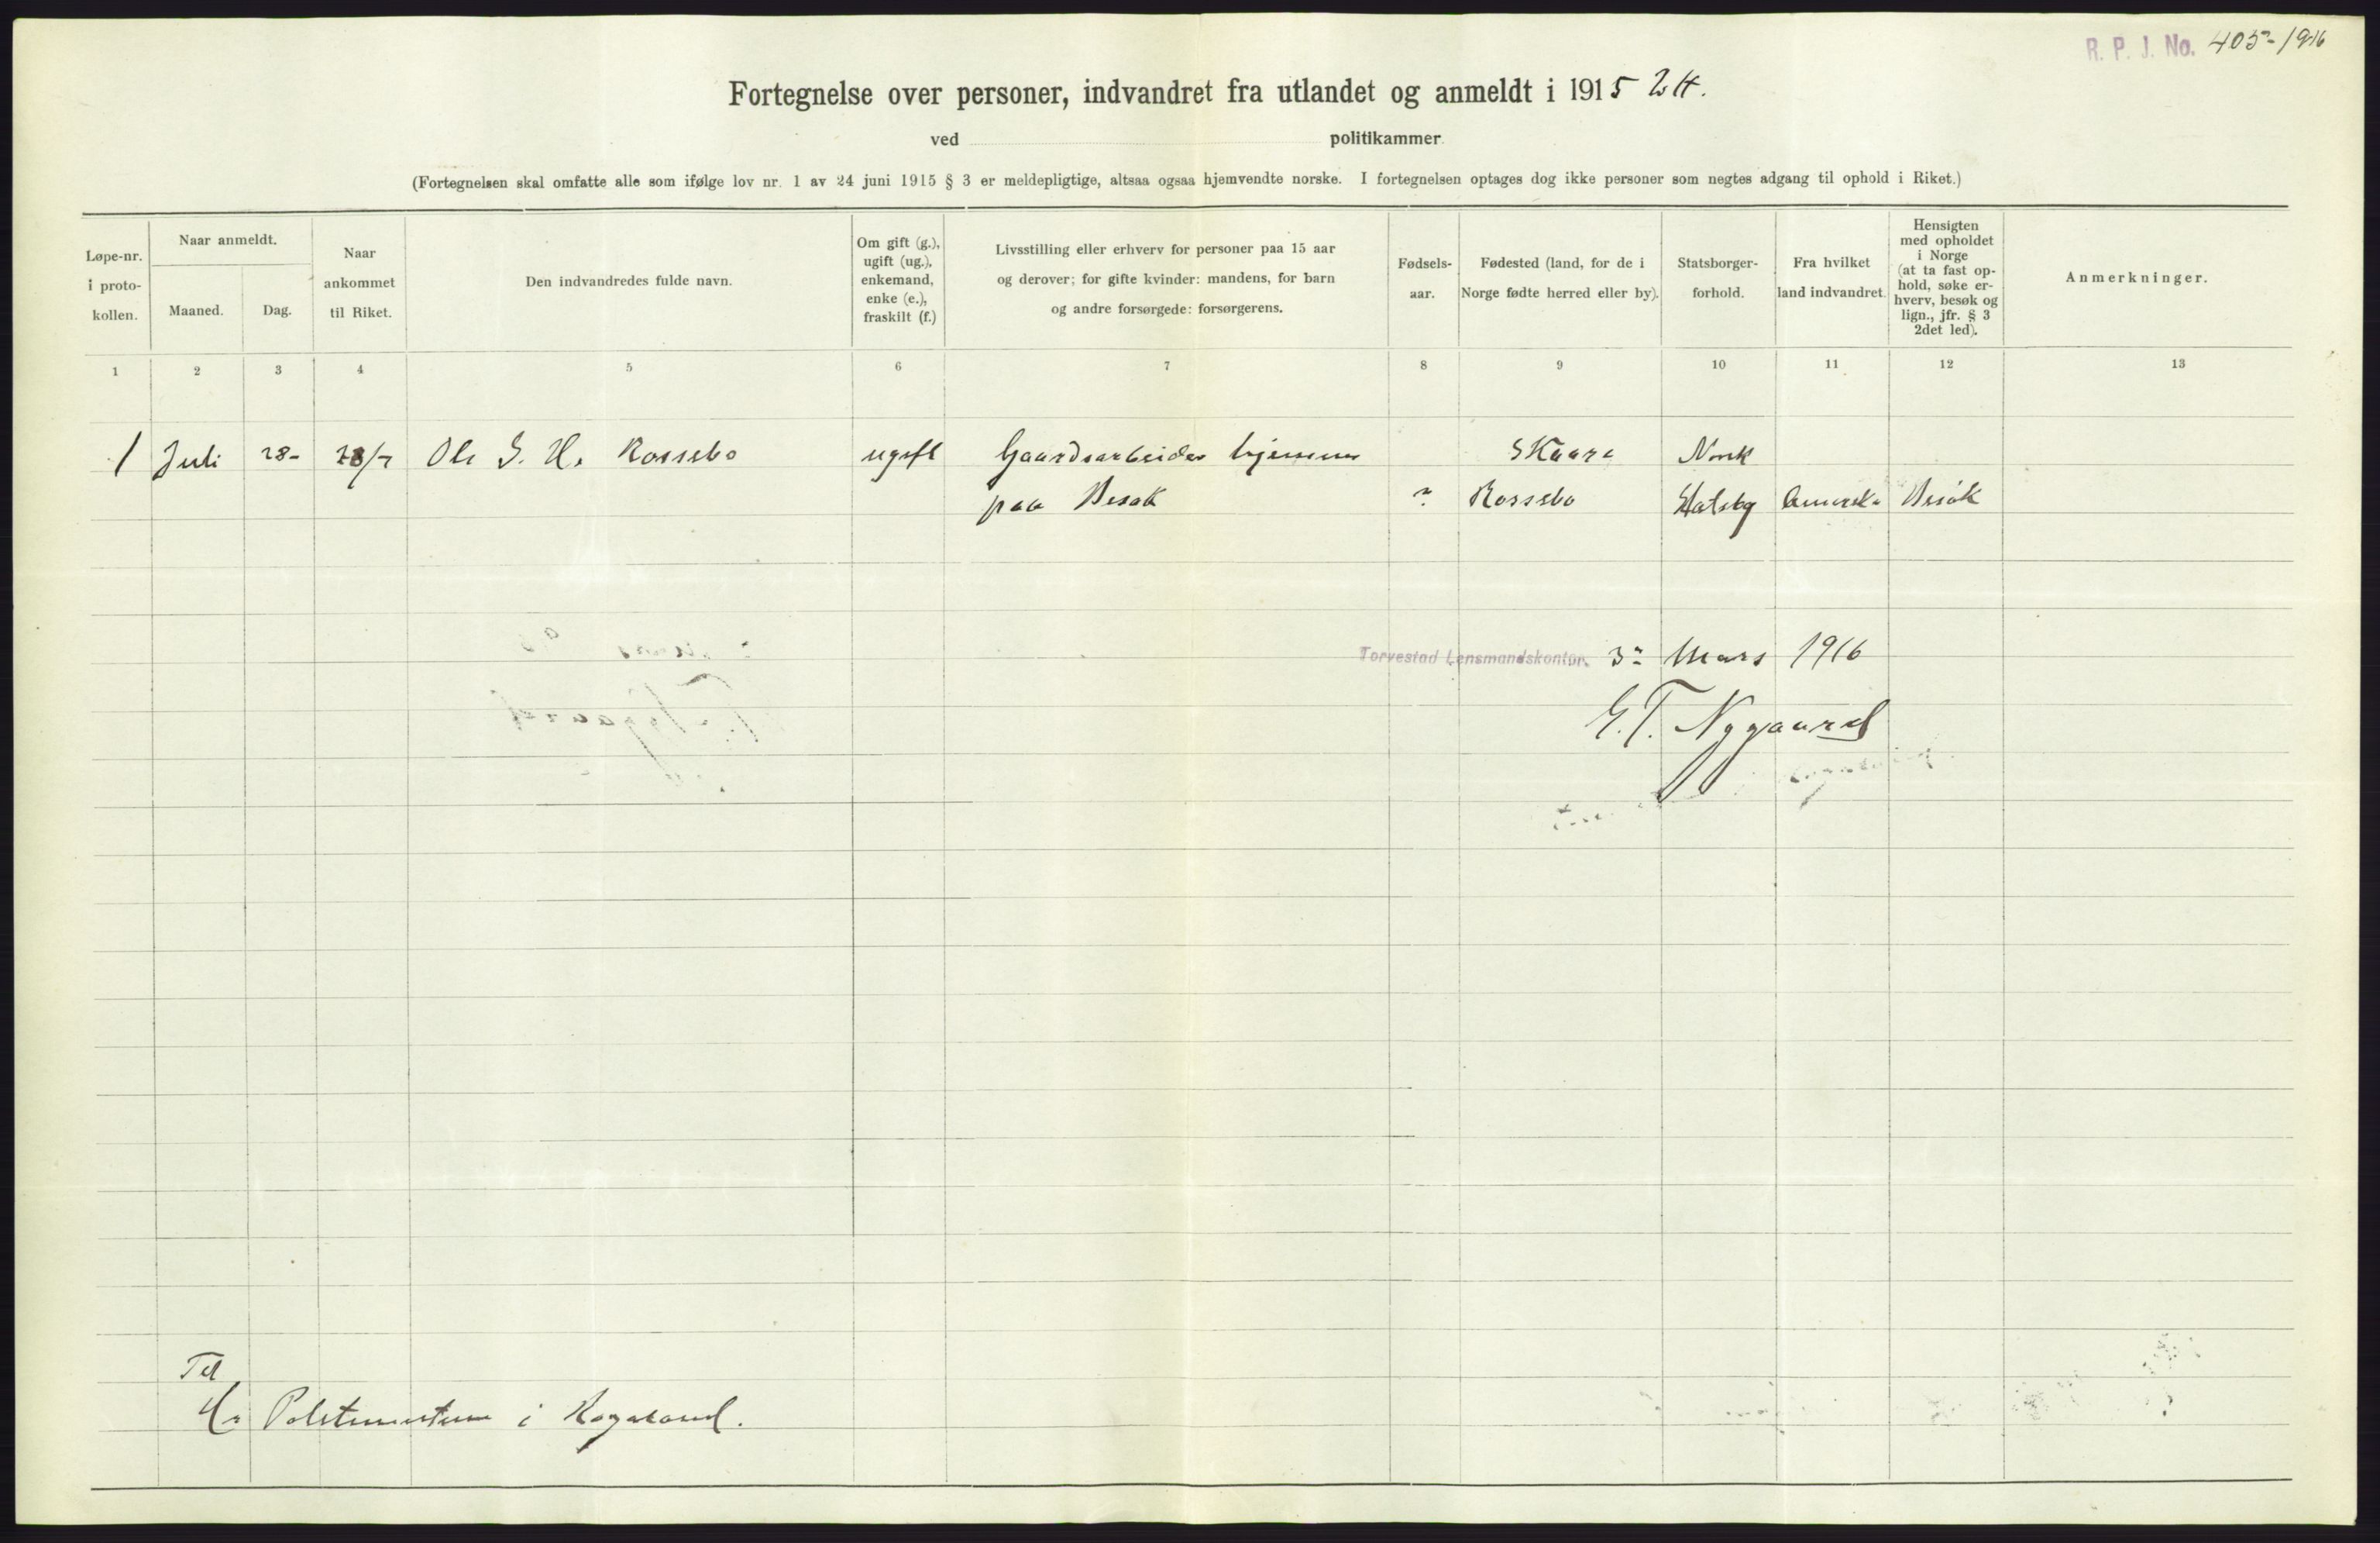 R. P. J. No. 405-1916
Fortegnelse over personer, indvandret fra utlandet og anmeldt i 1915 24.
ved politikammer.
(Fortegnelsen skal omfatte alle som ifølge lov nr. 1 av 24 juni 1915 § 3 er meldepligtige, altsaa ogsaa hjemvendte norske. I fortegnelsen optages dog ikke personer som negtes adgang til ophold i Riket.)
Løpe-nr.
i proto-
kollen.
Naar anmeldt.
Maaned.
Dag.
Naar
ankommet
til Riket.
Den indvandredes fulde navn.
Om gift (g.),
ugift (ug.),
enkemand,
enke (e.),
fraskilt (f.)
Livsstilling eller erhverv for personer paa 15 aar
og derover; for gifte kvinder: mandens, for barn
og andre forsørgede: forsørgerens.
Fødsels-
aar.
Fødested (land, for de i
Norge fødte herred eller by).
Statsborger-
forhold.
Fra hvilket
land indvandret.
Hensigten
med opholdet
i Norge
(at ta fast op-
hold, søke er-
hverv, besøk og
lign., jfr. § 3
2det led).
Anmerkninger.
1 2 3 4 5 6 7 8 9 10 11 12 13
1 Juli 28- 28/7 Ole G. H. Rossebø ugift Gaardsarbeider hjemme Skaare Norsk
paa Besøk ? Rossebø Statsbg Amerika Besøk
Torvestad Lensmandskontor. 3 Mars 1916
E. T. Nygaard
Til
Hr Politimesteren i Rogaland.